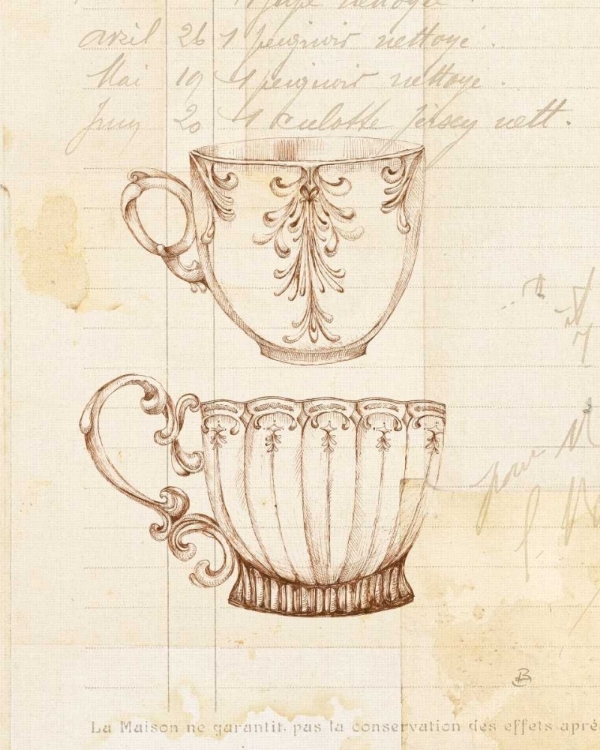 1 peignoir nettoyé
avril 26 1 peignoir nettoyé.
Mai 19 1 peignoir nettoye.
Juin 20 1 culotte Jersey nett.
pour
B
La Maison ne garantit pas la conservation des effets aprè